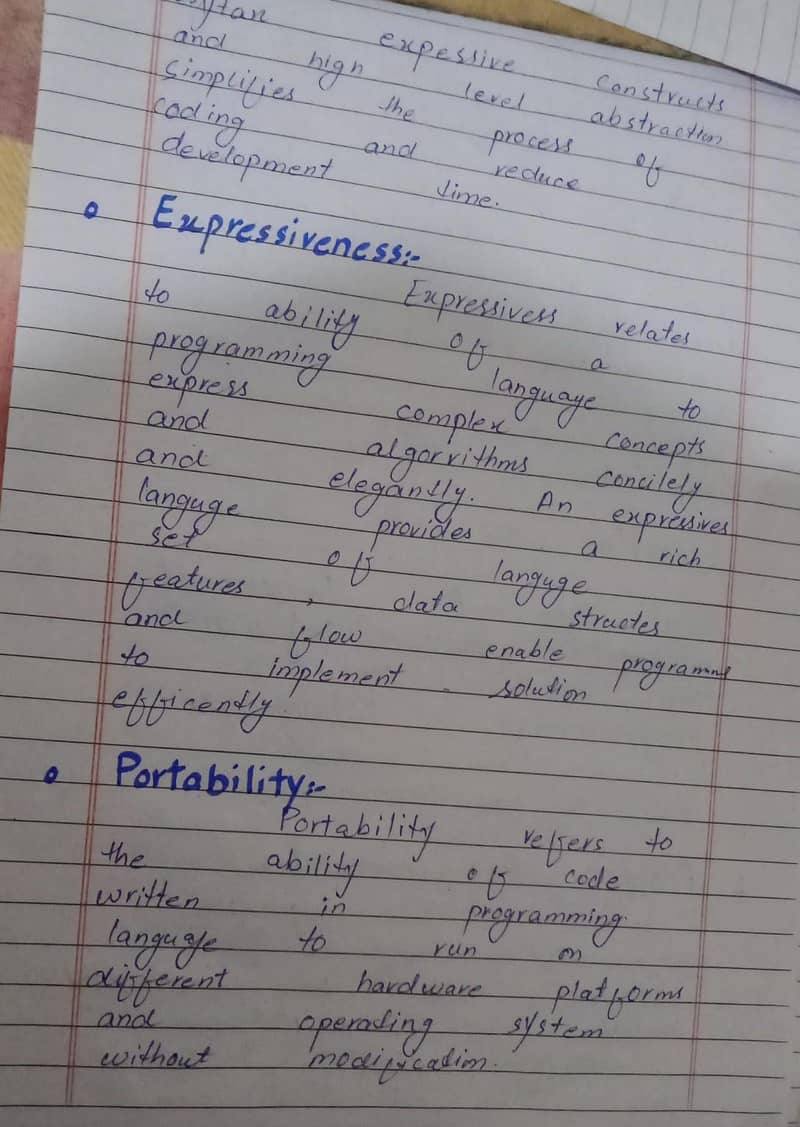 expessive constructs
and high level abstraction
simplifies the process of
coding and reduce
development time.
Expressiveness:-
Expressivess relates
to ability of a
programming language to
express complex concepts
and algorrithms concilely
and elegantly. An expressives
languge provides a rich
set of languge
features, data structes
and flow enable programms
to implement solution
efficently
Portability:-
Portability reffers to
the ability of code
written in programming
language to run on
different hardware platforms
and operating system
without modification.